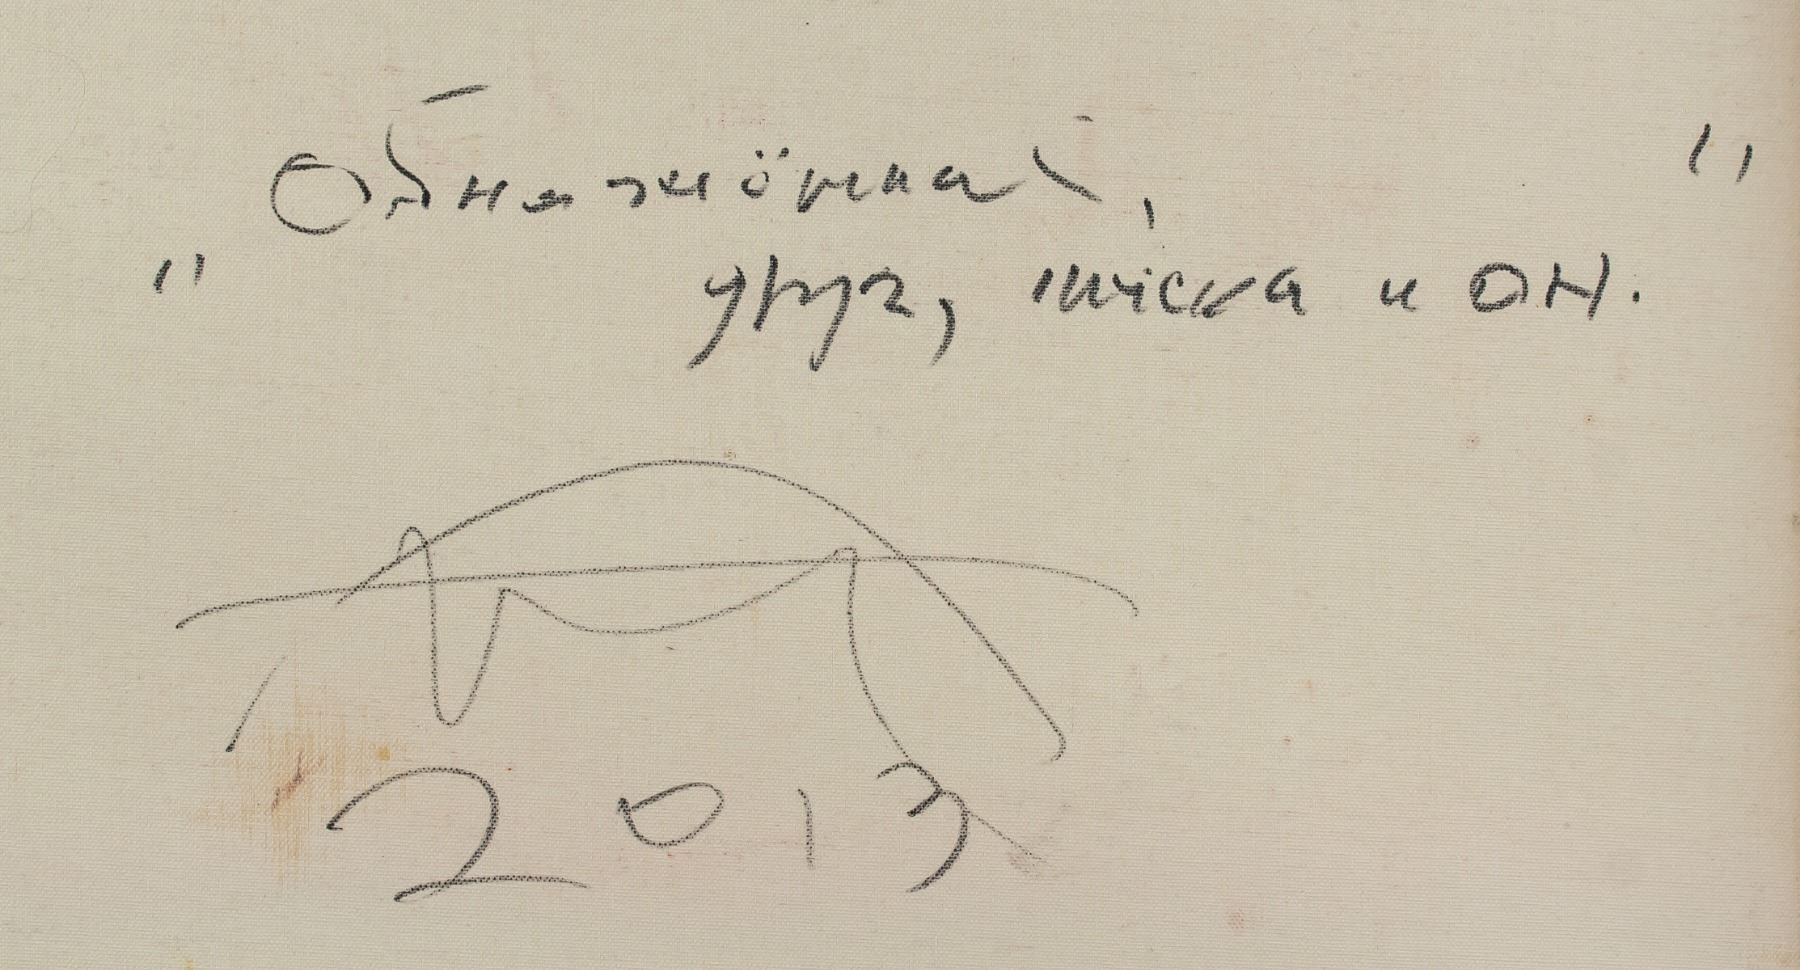 Обнажённая, "
" друг, и ОН.
2013